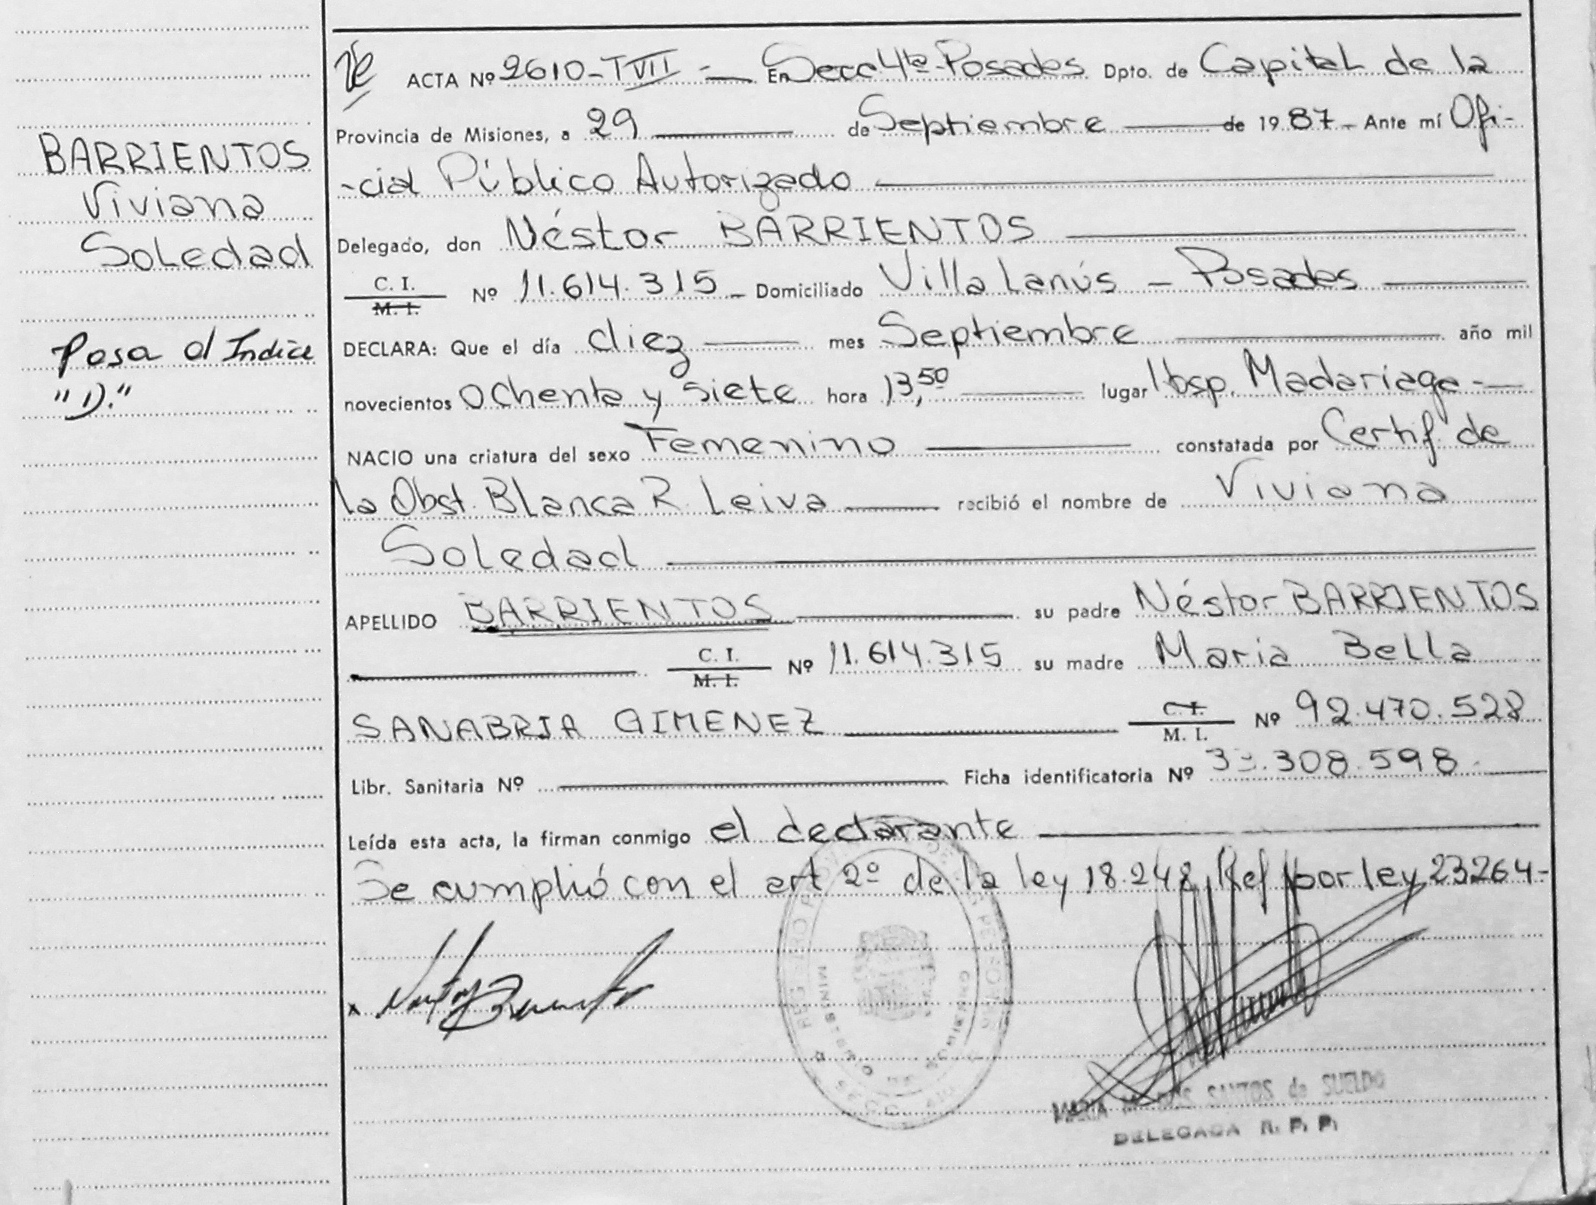 BARRIENTOS
Viviana
Soledad
Pasa al Indice
"D."
ACTA Nº 2610-TVII - En Secc 4ta-Posadas Dpto. de Capital de la
Provincia de Misiones, a 29 de Septiembre de 1987- Ante mí Ofi-
-cial Público Autorizado
Delegado, don Néstor BARRIENTOS
C. I.
M. I. Nº 11.614.315 - Domiciliado Villa Lanús - Posadas
DECLARA: Que el día diez mes Septiembre año mil
novecientos Ochenta y siete hora 13,50 lugar Hosp. Madariaga-
NACIO una criatura del sexo Femenino constatada por Certif. de
la Obst. Blanca R. Leiva recibió el nombre de Viviana
Soledad
APELLIDO BARRIENTOS su padre Néstor BARRIENTOS
C. I.
M. I. Nº 11.614.315 su madre Maria Bella
SANABRIA GIMENEZ C. I.
M. I. Nº 92.470.528
Libr. Sanitaria Nº Ficha identificatoria Nº 33.308.598-
Leída esta acta, la firman conmigo el declarante
Se cumplió con el art 2º de la ley 18.248, Ref por ley 23264-
REGISTRO PERSONAS
MINISTERIO DE
SECC.
MARIA SANTOS de SUELDO
DELEGADA R. P. P.